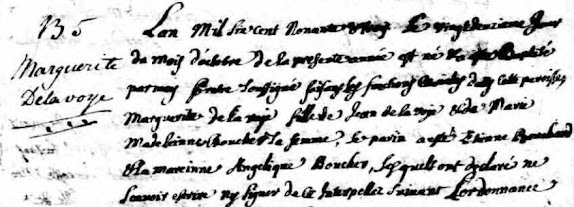 135
Marguerite
Delavoye
Lan Mil six cent Nonante & trois Le vingtdeuxieme Jour
du mois doctobre de la presente année est né & a esté Baptisé
par moy pretre soussigné faisant les fonctions Curiales dans cette paroisse
Marguerite de la voye fille de Jean de la voye & de Marie
Madelainne Boucher sa femme, Le parin a esté Etienne
& la mareinne Angelique Boucher, Lesquels ont declaré ne
scavoir escrire ny signer de ce Interpellez suivant Lordonnance